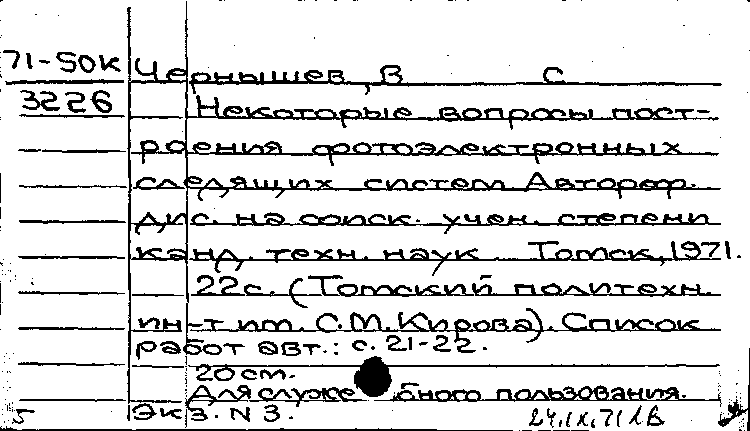 71-50к Чернышев, В С
3226 Некоторые вопросы пост-
роения фотоэлектронных
следящих систем Автореф.
дис. на соиск. учен. степени
канд. техн. наук Томск, 1971.
22с. (Томский политехн.
ин-т им. С.М. Кирова). Список
работ авт.: с. 21-22.
20 см.
Для служебного пользования.
5 Экз. N 3. 24.IX.71